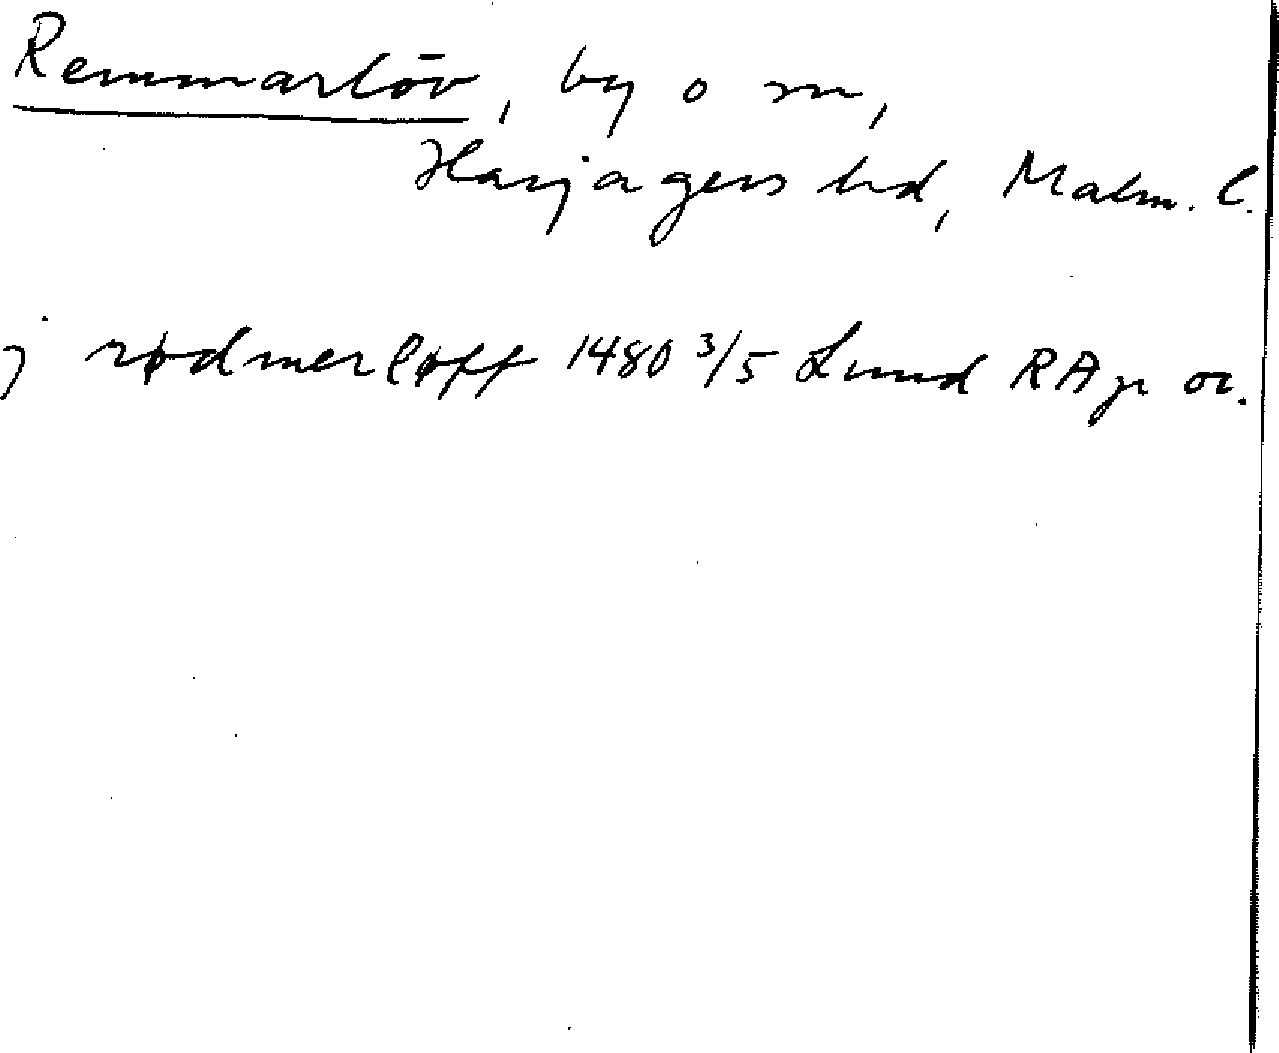 Remmarlöv, by o sn,
Harjagers hd, Malm. l.
j rødmerløff 1480 3/5 Lund RAp or.